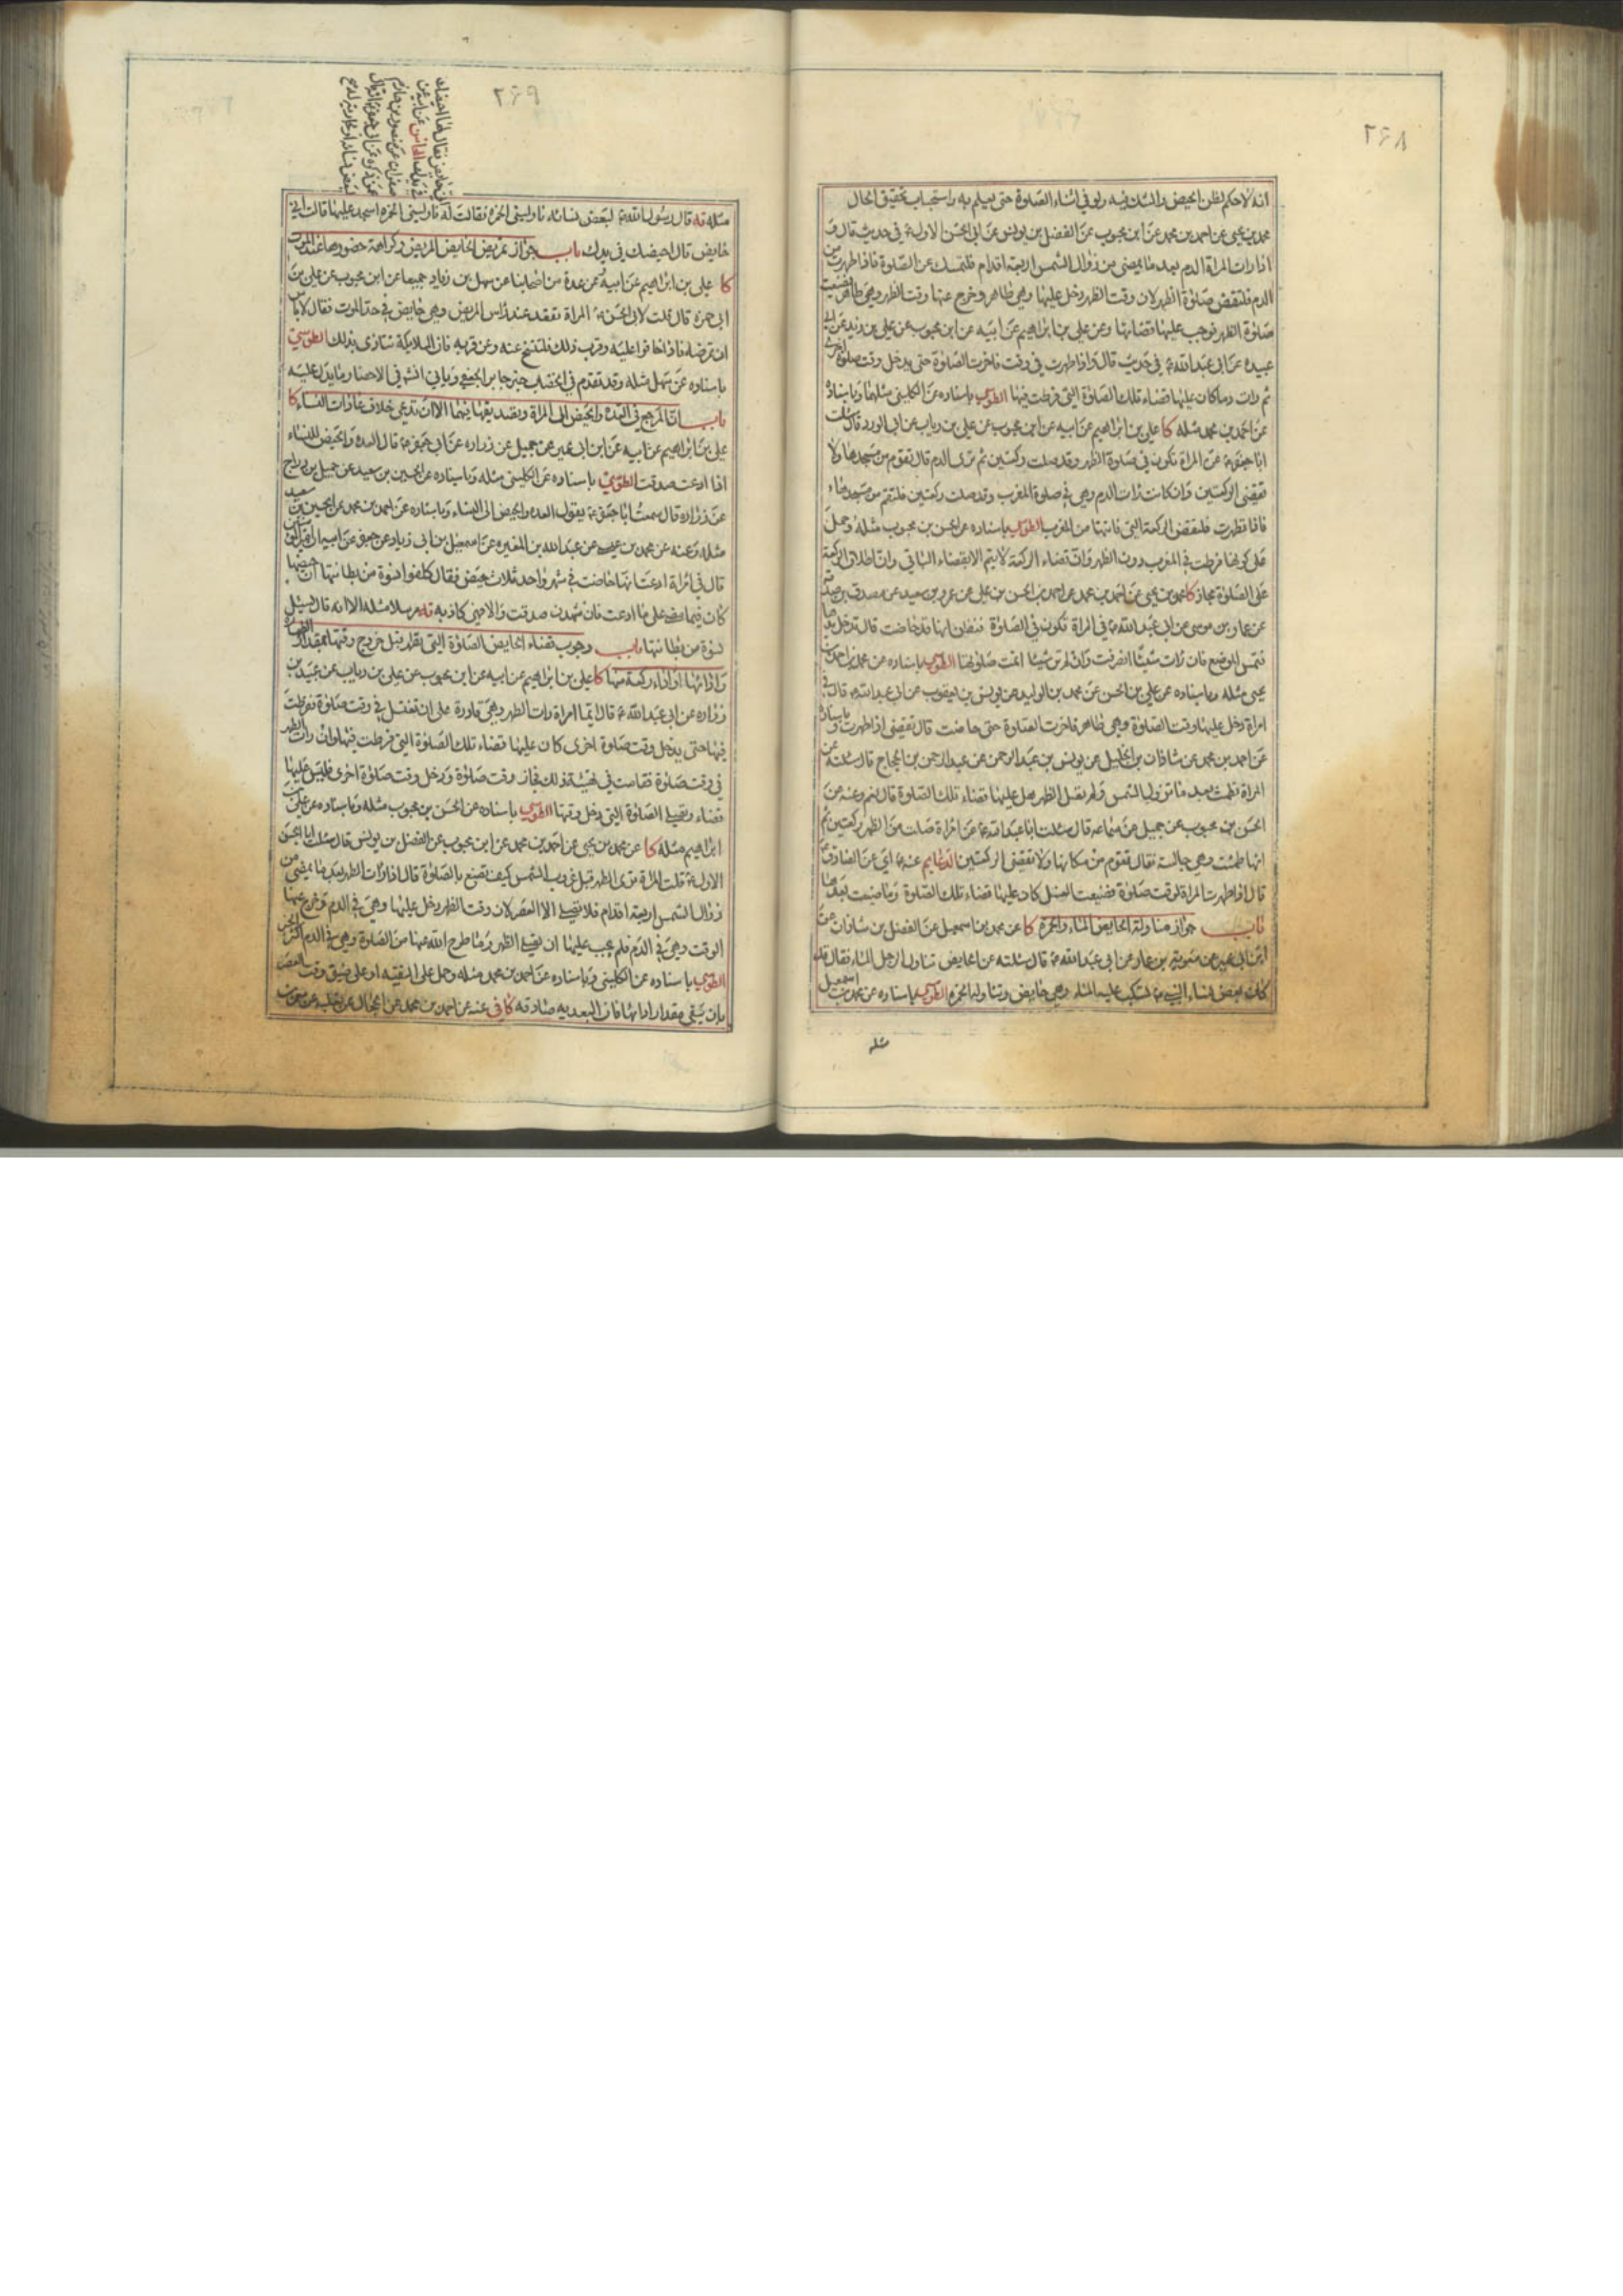 ٢٦٨
انه لا حكم لظن الحيض والشك فيه ولو في اثناء الصلوة حتى يعلم به واستحباب تحقيق الحال
محمد بن يحيى عن احمد بن محمد عن ابن محبوب عن الفضل بن يونس عن ابي الحسن الاول ع في حديث قال و
اذا رات المراة الدم بعد ما يمضى من زوال الشمس اربعة اقدام فلتمسك عن الصلوة فاذا طهرت من
الدم فلتقض صلوة الظهر لان وقت الظهر دخل عليها وهي طاهر وخرج عنها وقت الظهر وهي طاهر فضيعت
صلوة الظهر فوجب عليها قضاءها وعن علي بن ابراهيم عن ابيه عن ابن محبوب عن علي بن زيد عن ابي
عبيده عن ابي عبد الله ع في حديث قال واذا طهرت في وقت فاخرت الصلوة حتى يدخل وقت صلوة اخرى
ثم رات دما كان عليها قضاء تلك الصلوة التي فرطت فيها الطوسي باسناده عن الكليني مثلهما وباسناده
عن احمد بن محمد مثله كا علي بن ابراهيم عن ابيه عن ابن محبوب عن علي بن رياب عن ابي الورد قال سئلت
ابا جعفر ع عن المراة تكون في صلوة الظهر وقد صلت ركعتين ثم ترى الدم قال تقوم من مسجدها ولا
تقضي الركعتين وان كانت رات الدم وهي في صلوة المغرب وقد صلت ركعتين فلتقم من مسجدها
فاذا تطهرت فلتقض الركعة التي فاتتها من المغرب الطوسي باسناده عن الحسن بن محبوب مثله وحمل
على كونها فرطت في المغرب دون الظهر وان قضاء الركعة لا يتم الا بقضاء الباقي وان اطلاق الركعة
على الصلوة مجاز كا محمد بن يحيى عن احمد بن محمد عن احمد بن الحسن بن علي عن عمرو بن سعيد عن مصدق بن صدقه
عن عمار بن موسى عن ابي عبد الله ع في المراة تكون في الصلوة فتظن انها قد حاضت قال تدخل يدها
فتمس الموضع فان رات شيئا انصرفت وان لم تر شيئا اتمت صلوتها الطوسي باسناده عن محمد بن احمد بن
يحيى مثله وباسناده عن علي بن الحسن عن محمد بن الوليد عن يونس بن يعقوب عن ابي عبد الله ع قال في
امراة دخل عليها وقت الصلوة وهي طاهر فاخرت الصلوة حتى حاضت قال تقضي اذا طهرت وباسناده
عن احمد بن محمد عن شاذان بن الخليل عن يونس بن عبد الرحمن عن عبد الرحمن بن الحجاج قال سئلته عن
المراة تطمث بعد ما تزول الشمس ولم تصل الظهر هل عليها قضاء تلك الصلوة قال نعم وعنه عن
الحسن بن محبوب عن جميل عن سماعه قال سئلت ابا عبد الله ع عن امراة صلت من الظهر ركعتين ثم
انها طمثت وهي جالسة فقال تقوم من مكانها ولا تقضي الركعتين الدعايم عنه ع اي عن الصادق ع
قال اذا طهرت المراة لوقت صلوة فضيعت الغسل كان عليها قضاء تلك الصلوة وما ضيعت بعدها
باب جواز مناولة الحايض الماء والخمرة كا عن محمد بن اسمعيل عن الفضل بن شاذان عن
ابن ابي عمير عن معوية بن عمار عن ابي عبد الله ع قال سئلته عن الحايض تناول الرجل الماء فقال قد
كان بعض نساء النبي ص تسكب عليه الماء وهي حايض وتناوله الخمرة الطوسي باسناده عن محمد بن اسمعيل
مثله
٢٦٩
مثله قه قال رسول الله ص لبعض نسائه ناوليني الخمرة فقالت له ناوليني الخمره اسجد عليها قالت اني
حايض قال احيضك في يدك باب جواز تمريض الحايض المريض وكراهة حضورها عند الموت
كا علي بن ابراهيم عن ابيه عن عدة من اصحابنا عن سهل بن زياد جميعا عن ابن محبوب عن علي بن
ابي حمزه قال قلت لابي الحسن ع المراة تقعد عند راس المريض وهي حايض في حد الموت فقال لا باس
ان تمرضه فاذا خافوا عليه وقرب ذلك فلتنح عنه وعن قربه فان الملائكة تتاذى بذلك الطوسي
باسناده عن سهل مثله وقد تقدم في الخضاب خبر جابر الجعفي وياتي انشه في الاحضار ما يدل عليه
باب ان المرجع في العدة والحيض الى المراة وتصديقها فيهما الا ان تدعي خلاف عادات النساء كا
علي بن ابراهيم عن ابيه عن ابن ابي عمير عن جميل عن زراره عن ابي جعفر ع قال العده والحيض للنساء
اذا ادعت صدقت الطوسي باسناده عن الكليني مثله وباسناده عن الحسين بن سعيد عن جميل بن دراج
عن زراره قال سمعت ابا جعفر ع يقول العده والحيض الى النساء وباسناده عن احمد بن محمد عن الحسين بن سعيد
مثله وعنه عن محمد بن عيسى عن عبد الله بن المغيره عن اسمعيل بن ابي زياد عن جعفر عن ابيه ان امير المؤمنين
قال في امراة ادعت انها حاضت في شهر واحد ثلاث حيض فقال كلفوا نسوة من بطانتها ان حيضها
كان فيما مضى على ما ادعت فان شهدن صدقت والا فهي كاذبه قه مرسلا مثله الا انه قال يسئل
نسوة من بطانتها باب وجوب قضاء الحايض الصلوة التي تقدر قبل خروج وقتها بمقدار الطهارة
وادائها او اداء ركعة منها كا علي بن ابراهيم عن ابيه عن ابن محبوب عن علي بن رياب عن عبيد بن
زراره عن ابي عبد الله ع قال ايما امراة رات الطهر وهي قادرة على ان تغتسل في وقت صلوة ففرطت
فيها حتى يدخل وقت صلوة اخرى كان عليها قضاء تلك الصلوة التي فرطت فيها وان رات الطهر
في وقت صلوة فقامت في تهيئة ذلك فجاز وقت صلوة ودخل وقت صلوة اخرى فليس عليها
قضاء وتصلي الصلوة التي دخل وقتها الطوسي باسناده عن الحسن بن محبوب مثله وباسناده عن علي بن
ابراهيم مثله كا عن محمد بن يحيى عن احمد بن محمد عن ابن محبوب عن الفضل بن يونس قال سئلت ابا الحسن
الاول ع قلت المراة ترى الطهر قبل غروب الشمس كيف تصنع بالصلوة قال اذا رات الطهر بعد ما يمضى من
زوال الشمس اربعة اقدام فلا تصلي الا العصر لان وقت الظهر دخل عليها وهي في الدم وخرج عنها
الوقت وهي في الدم فلم يجب عليها ان تصلي الظهر وما طرح الله عنها من الصلوة وهي في الدم اكثر
الطوسي باسناده عن الكليني وباسناده عن احمد بن محمد مثله وحمل على التقيه او على ضيق وقت العصر
بان يبقى مقدار ادائها فان البعديه صادقه كافي عنه عن احمد بن محمد عن الحجال عن ثعلبه عن معمر بن